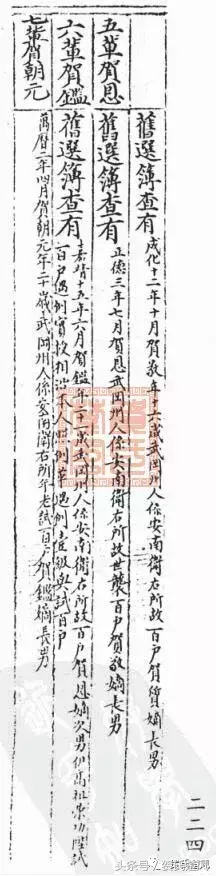 舊選簿查有 成化十二年十月賀年十歲武岡州人係安南衛右所故百户賀質嫡長男
五輩賀恩
舊選簿查有 正德三年七月賀恩武岡州人係安南衛右所故世襲百户賀嫡長男
六輩賀鑑
舊選簿查有 嘉靖十五年六月賀鑑年二十一歲武岡州人係安南衛右所故百户賀恩嫡次男伊高祖原功陞試
百户遇例實授相沿本人照例革遇例壹級與試百户
七輩賀朝元
萬曆二年四月賀朝元年二十歲武岡州人係安南衛右所年老試百户賀鑑嫡長男
二二四